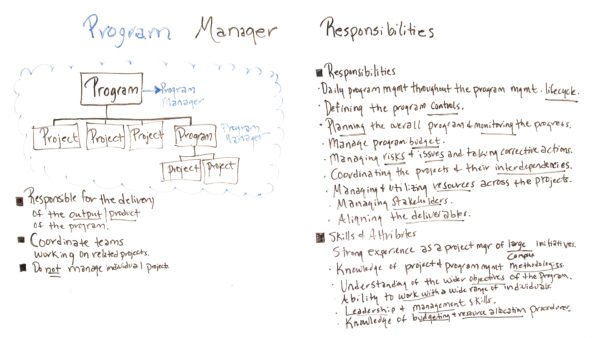 Program Manager Responsibilities
Program
Program
Manager
Project
Project
Project
Program
Program
Manager
Project
Project
Responsible for the delivery
of the output/product
of the program.
Coordinate teams
working on related projects.
Do not manage individual projects
Responsibilities
Daily program mgmt throughout the program mgmt. lifecycle.
Defining the program controls.
Planning the overall program & monitoring the progress.
Manage program budget.
Managing risks & issues and taking corrective actions.
Coordinating the projects & their interdependencies.
Managing & utilizing resources across the projects.
Managing stakeholders.
Aligning the deliverables.
Skills & Attributes
Strong experience as a project mgr of large initiatives.
complex
Knowledge of project & program mgmt methodologies.
Understanding of the wider objectives of the program.
Ability to work with a wide range of individuals
Leadership & management skills.
Knowledge of budgeting & resource allocation procedures.